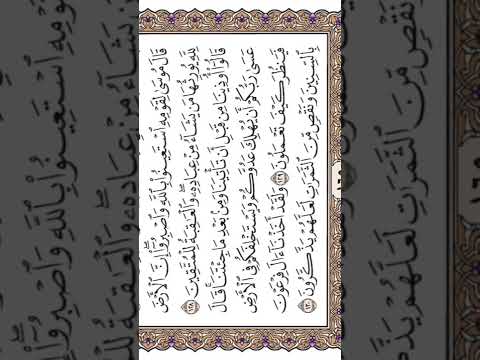 قَالَ مُوسَىٰ لِقَوْمِهِ ٱسْتَعِينُوا۟ بِٱللَّهِ وَٱصْبِرُوٓا۟ إِنَّ ٱلْأَرْضَ
لِلَّهِ يُورِثُهَا مَن يَشَآءُ مِنْ عِبَادِهِۦ وَٱلْعَـٰقِبَةُ لِلْمُتَّقِينَ ١٢٨
قَالُوٓا۟ أُوذِينَا مِن قَبْلِ أَن تَأْتِيَنَا وَمِنۢ بَعْدِ مَا جِئْتَنَا قَالَ
عَسَىٰ رَبُّكُمْ أَن يُهْلِكَ عَدُوَّكُمْ وَيَسْتَخْلِفَكُمْ فِى ٱلْأَرْضِ
فَيَنظُرَ كَيْفَ تَعْمَلُونَ ١٢٩ وَلَقَدْ أَخَذْنَآ ءَالَ فِرْعَوْنَ
بِٱلسِّنِينَ وَنَقْصٍ مِّنَ ٱلثَّمَرَٰتِ لَعَلَّهُمْ يَذَّكَّرُونَ ١٣٠